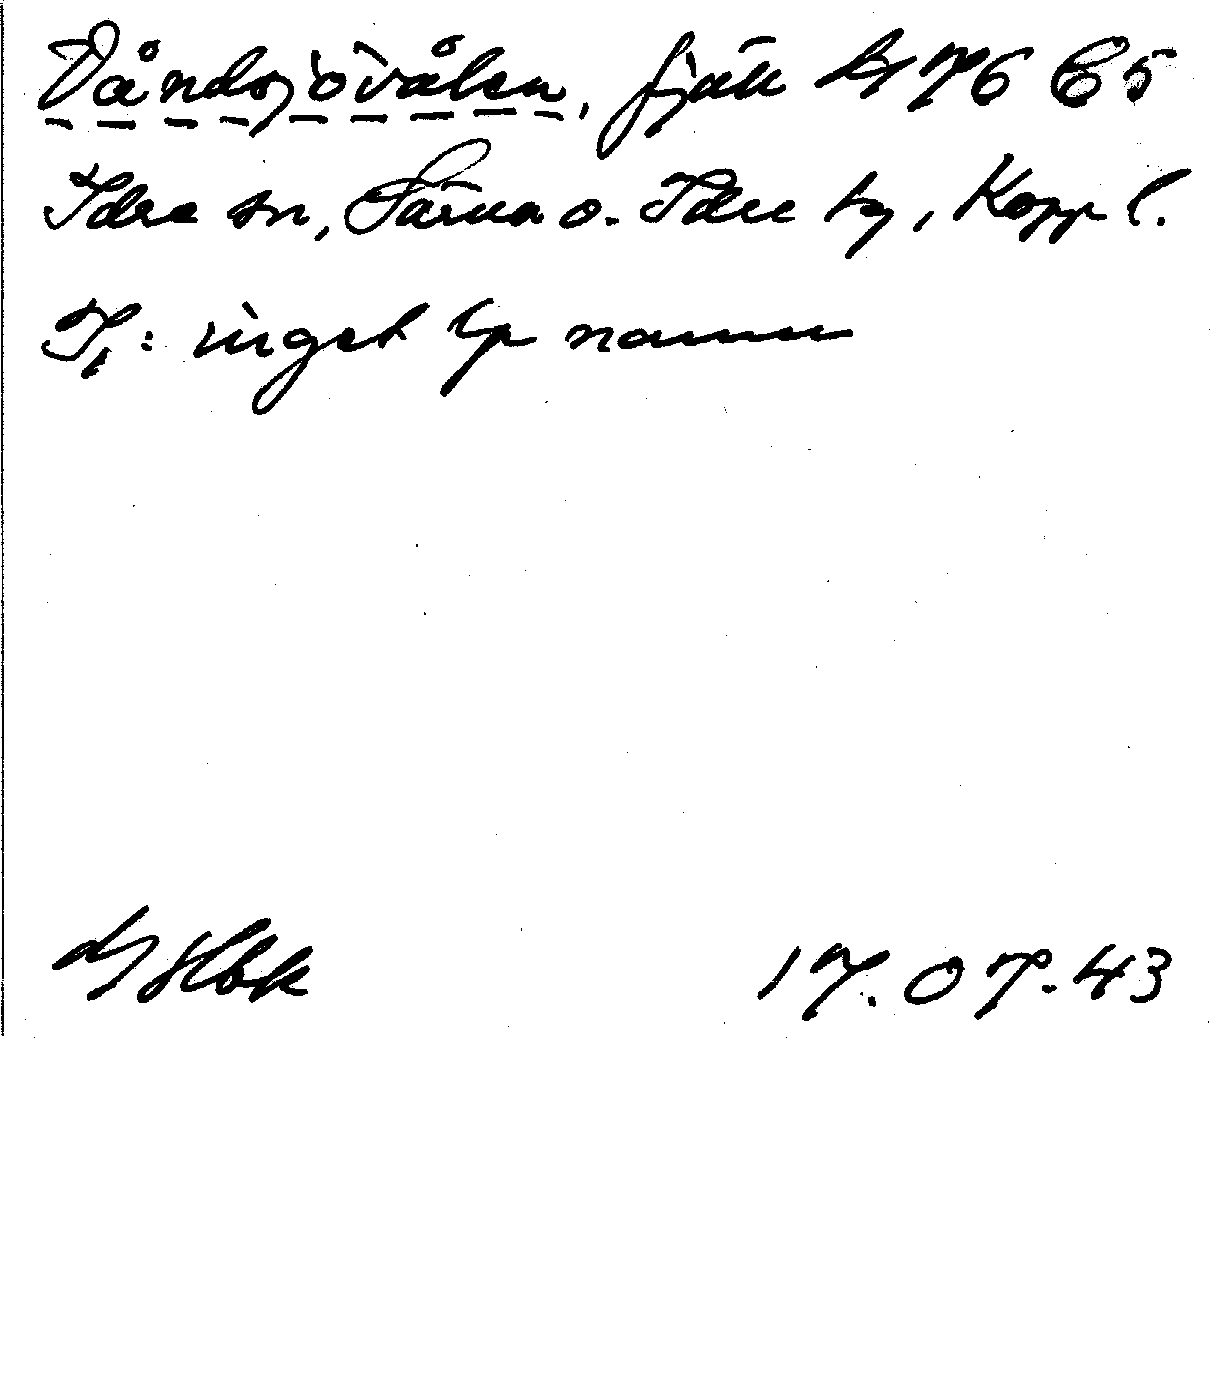 Våndsjövålen, fjäll 476 C5
Idre sn, Särna o. Idre tg, Kopp l.
I: inget lp namn
17.07.43